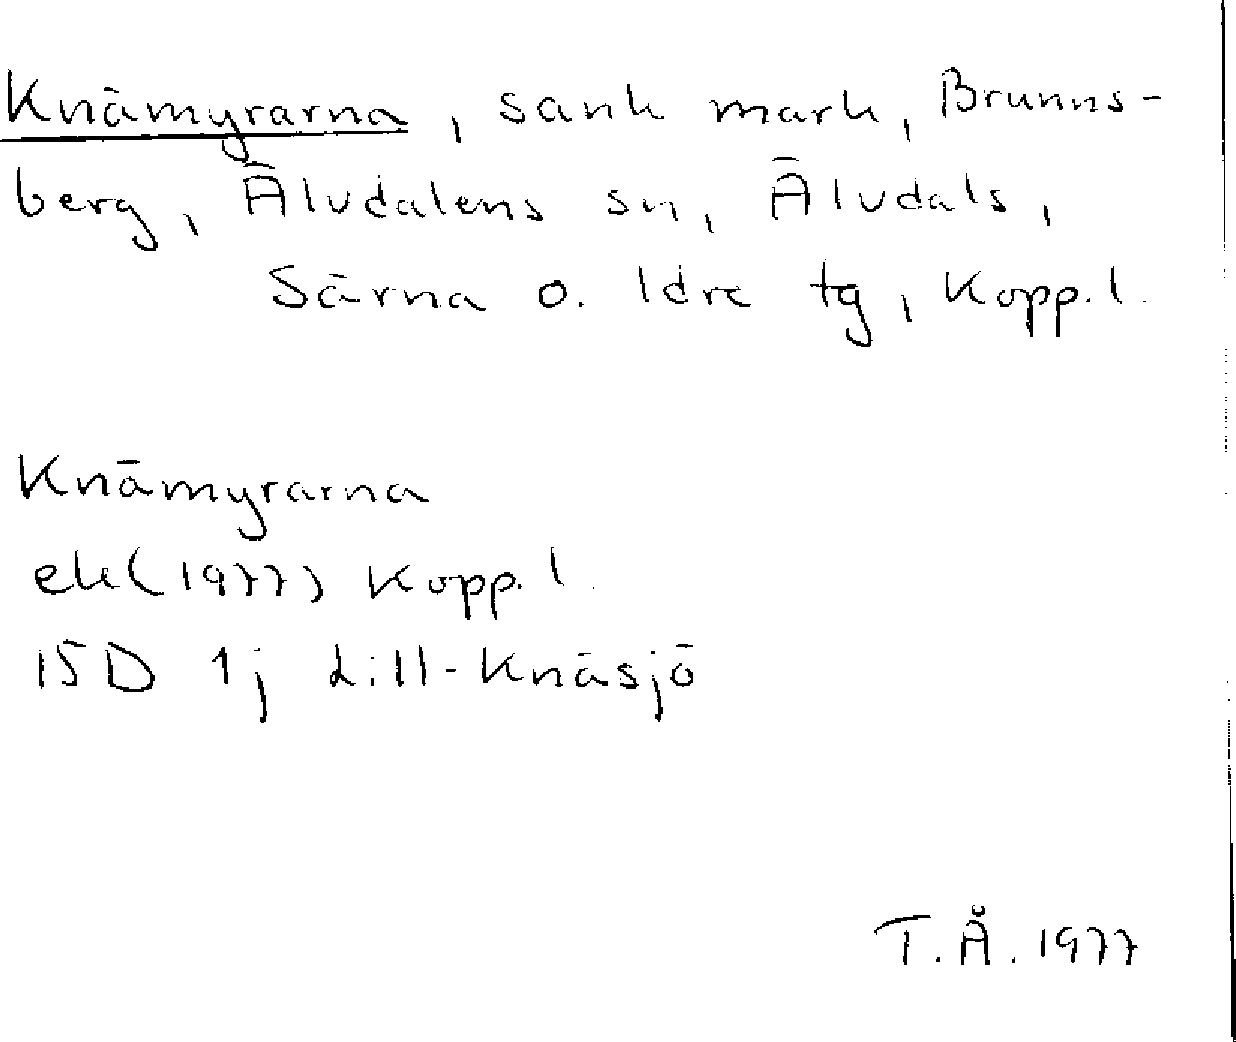 Knämyrarna, sank mark, Brunns-
berg, Älvdalens sn, Älvdals,
Särna o. Idre tg, Kopp. l.
Knämyrarna
ek (1977) Kopp. l.
15D 1j Lill-Knäsjö
T.Å. 1977